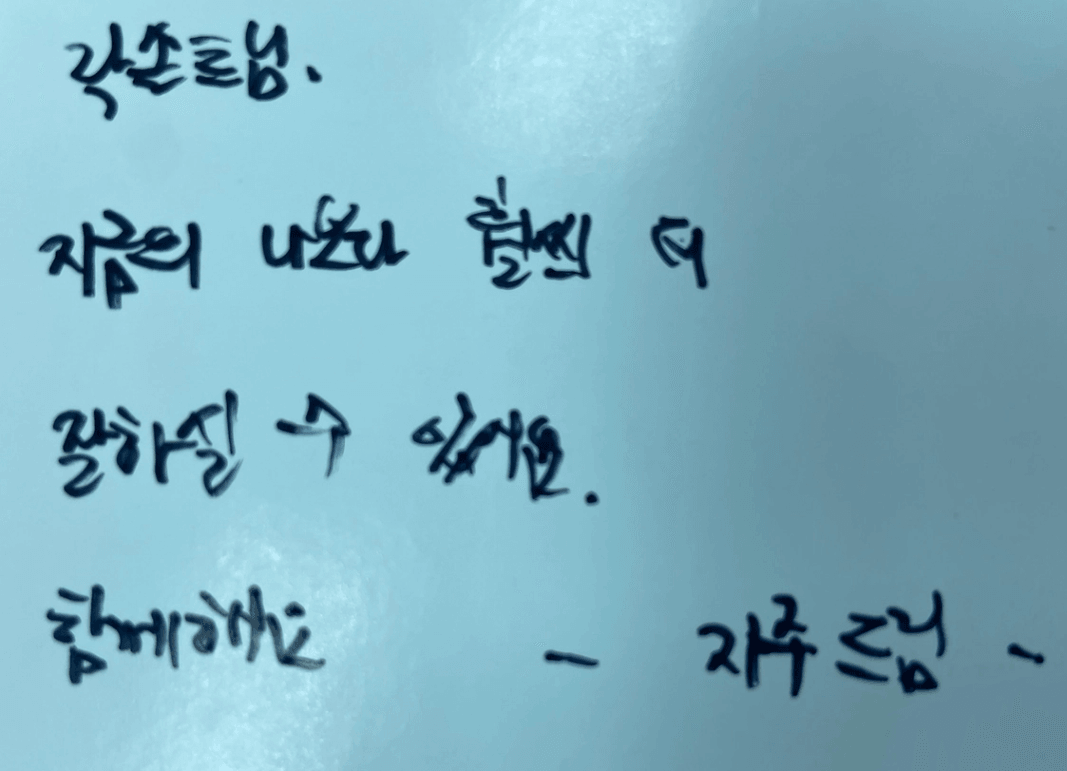 락손트님.
지금의 나보다 훨씬 더
잘하실 수 있어요.
함께해요 - 자주 드림 -